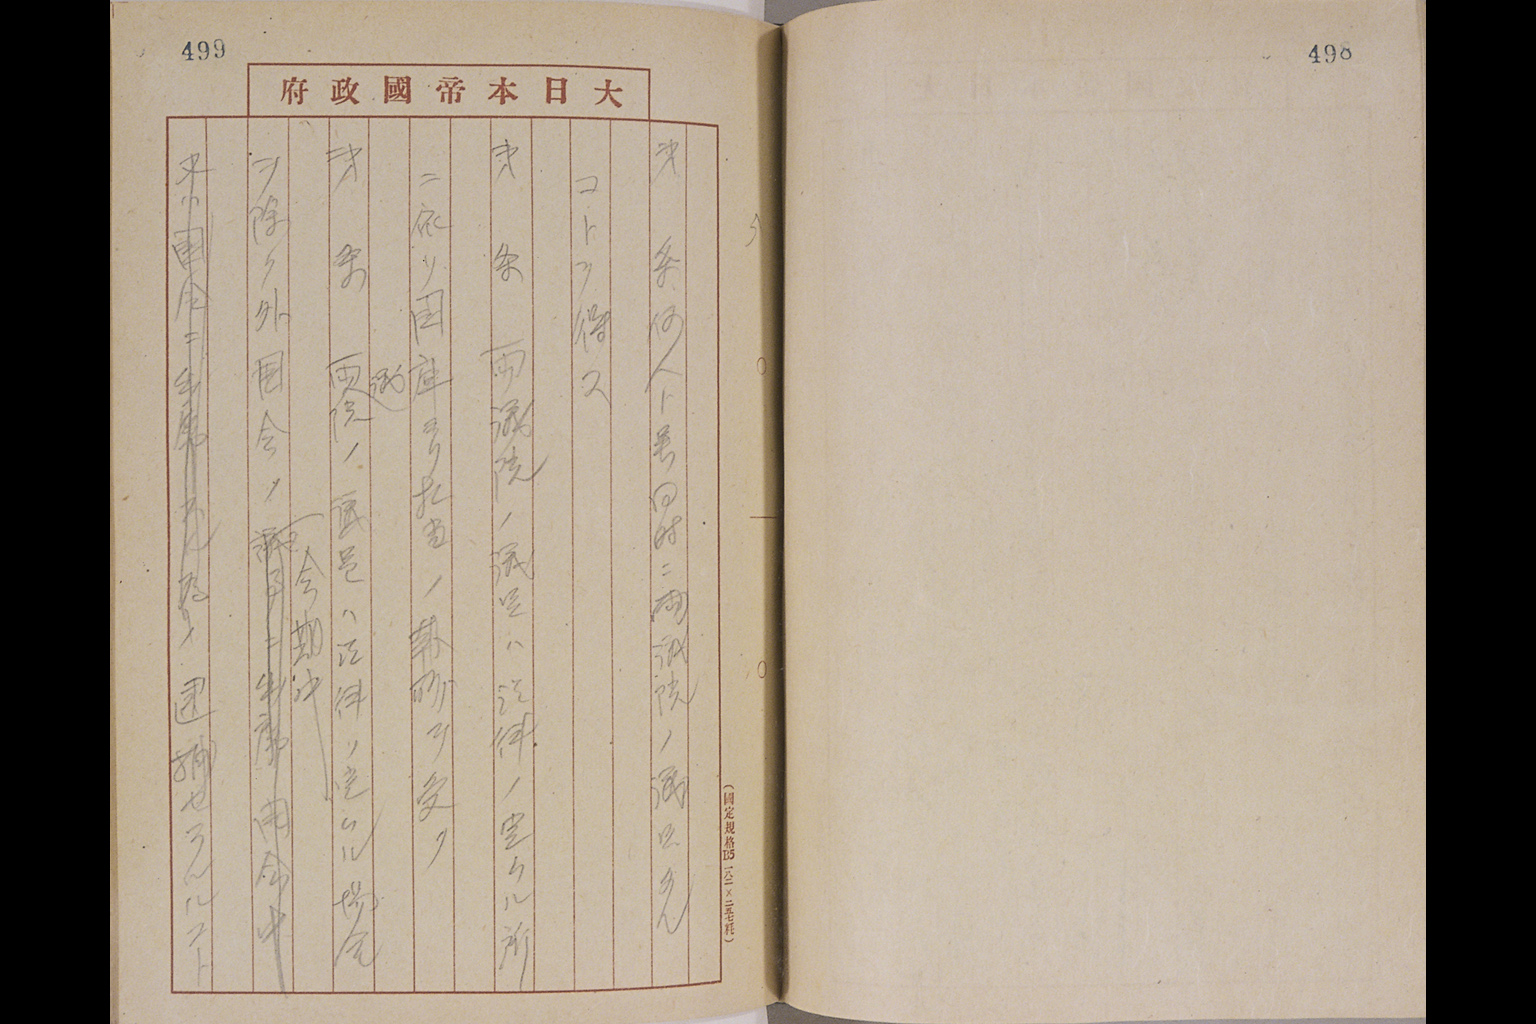 498
499
大日本帝國政府
第　条　何人ト雖同時ニ両議院ノ議員タル
コトヲ得ス
第　条　両議院ノ議員ハ法律ノ定ムル所
ニ依リ国庫ヨリ相当ノ報酬ヲ受ク
第　条　両議院ノ議員ハ法律ノ定ムル場合
ヲ除ク外国会ノ
会期中
議事ニ出席
開会中
又ハ国会ニ出席
逮捕セラルルコト
(國定規格B5 一八二×二五七粍)